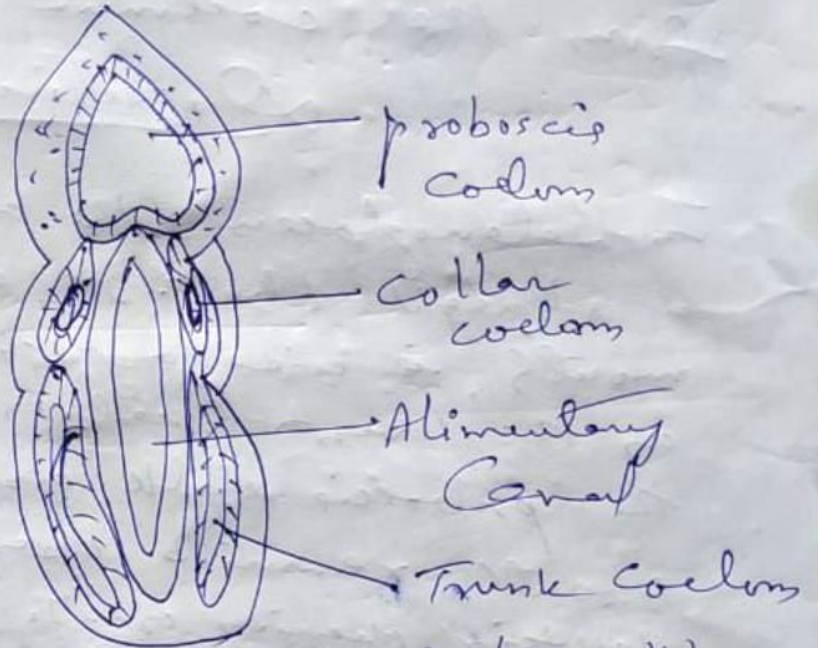 proboscis
coelom
Collar
coelom
Alimentary
Canal
Trunk Coelom